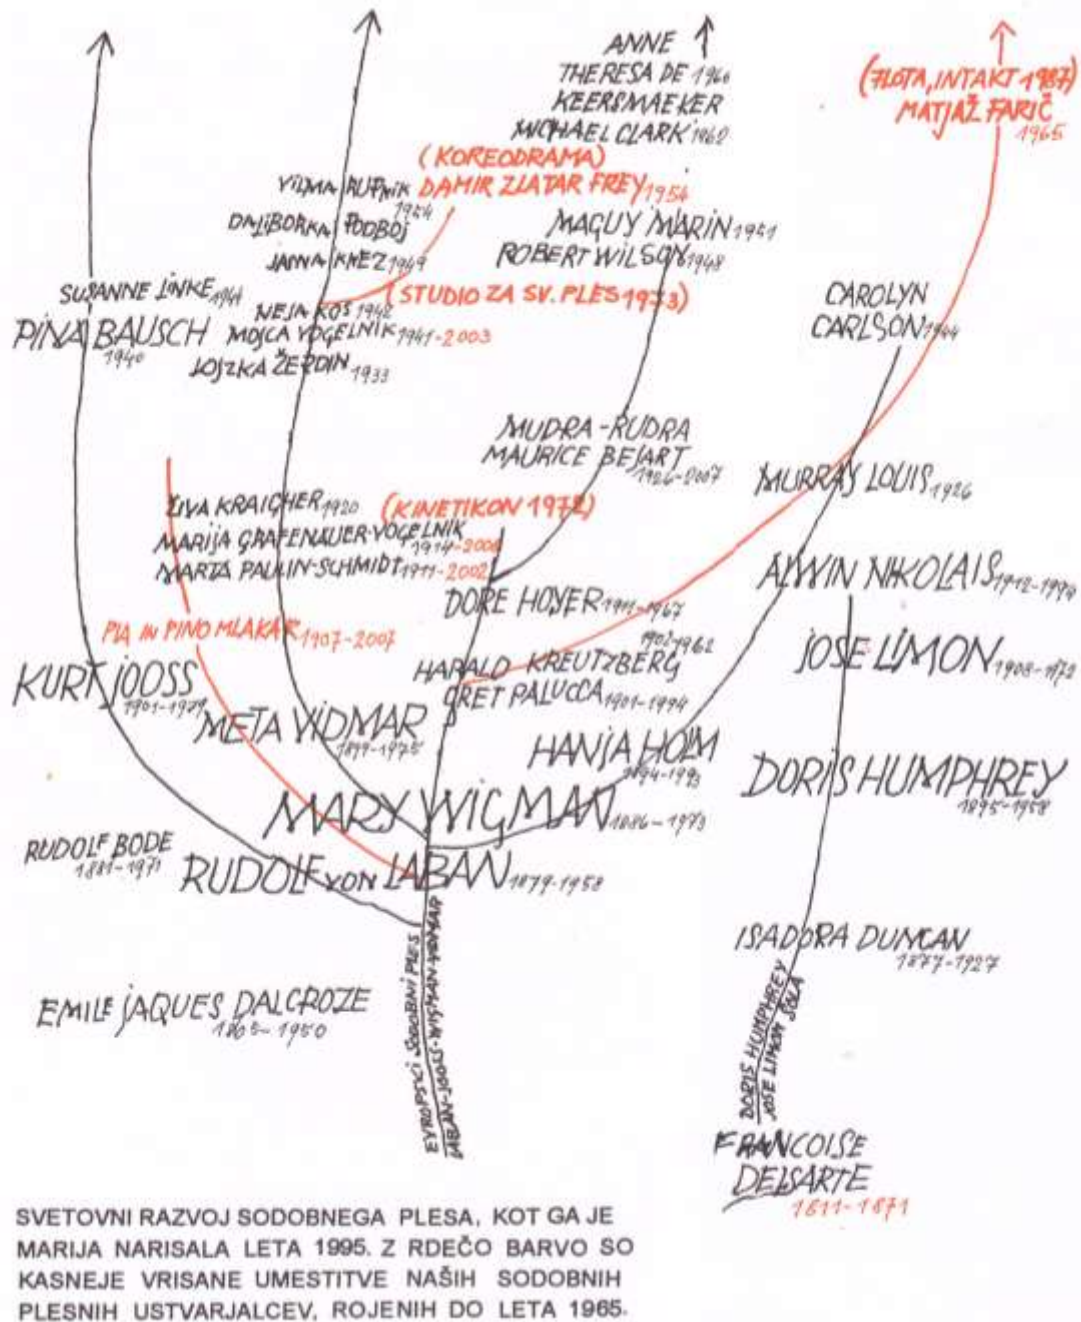 ANNE
THERESA DE 1960
KEERSMAEKER
MICHAEL CLARK 1962
(FLOTA, INTAKT 1987)
MATJAŽ FARIČ
1965
(KOREODRAMA)
VILMA RUPNIK DAMIR ZLATAR FREY 1954
1954
DALIBORKA PODBOJ
MAGUY MARIN 1951
JANA KNEZ 1949
ROBERT WILSON 1948
SUSANNE LINKE 1944
NEJA KOS 1942
(STUDIO ZA SV. PLES 1973)
CAROLYN
CARLSON 1944
PINA BAUSCH
1940
MOJCA VOGELNIK 1941-2003
LOJZKA ŽERDIN 1933
MUDRA-RUDRA
MAURICE BEJART
1926-2007
MURRAY LOUIS 1926
ŽIVA KRAIGHER 1920 (KINETIKON 1972)
MARIJA GRAFENAUER-VOGELNIK
MARTA PAULIN-SCHMIDT 1911-2002
ALWIN NIKOLAIS
DORE HOYER 1911-1967
PIA IN PINO MLAKAR 1907-2007
1902-1962
HARALD KREUTZBERG
GRET PALUCCA 1901-1994
JOSE LIMON
KURT JOOSS
1901-1979
META VIDMAR
1899-1975
HANJA HOLM
DORIS HUMPHREY
1895-1958
MARY WIGMAN 1886-1973
RUDOLF BODE
1881-1971
RUDOLF VON LABAN 1879-1958
ISADORA DUNCAN
1877-1927
EMILE JAQUES DALCROZE
1865-1950
EVROPSKI SODOBNI PLES
LABAN-JOOSS-WIGMAN-VIDMAR
DORIS HUMPHREY
JOSE LIMON ŠOLA
FRANCOISE
DELSARTE
1811-1871
SVETOVNI RAZVOJ SODOBNEGA PLESA, KOT GA JE
MARIJA NARISALA LETA 1995. Z RDEČO BARVO SO
KASNEJE VRISANE UMESTITVE NAŠIH SODOBNIH
PLESNIH USTVARJALCEV, ROJENIH DO LETA 1965.